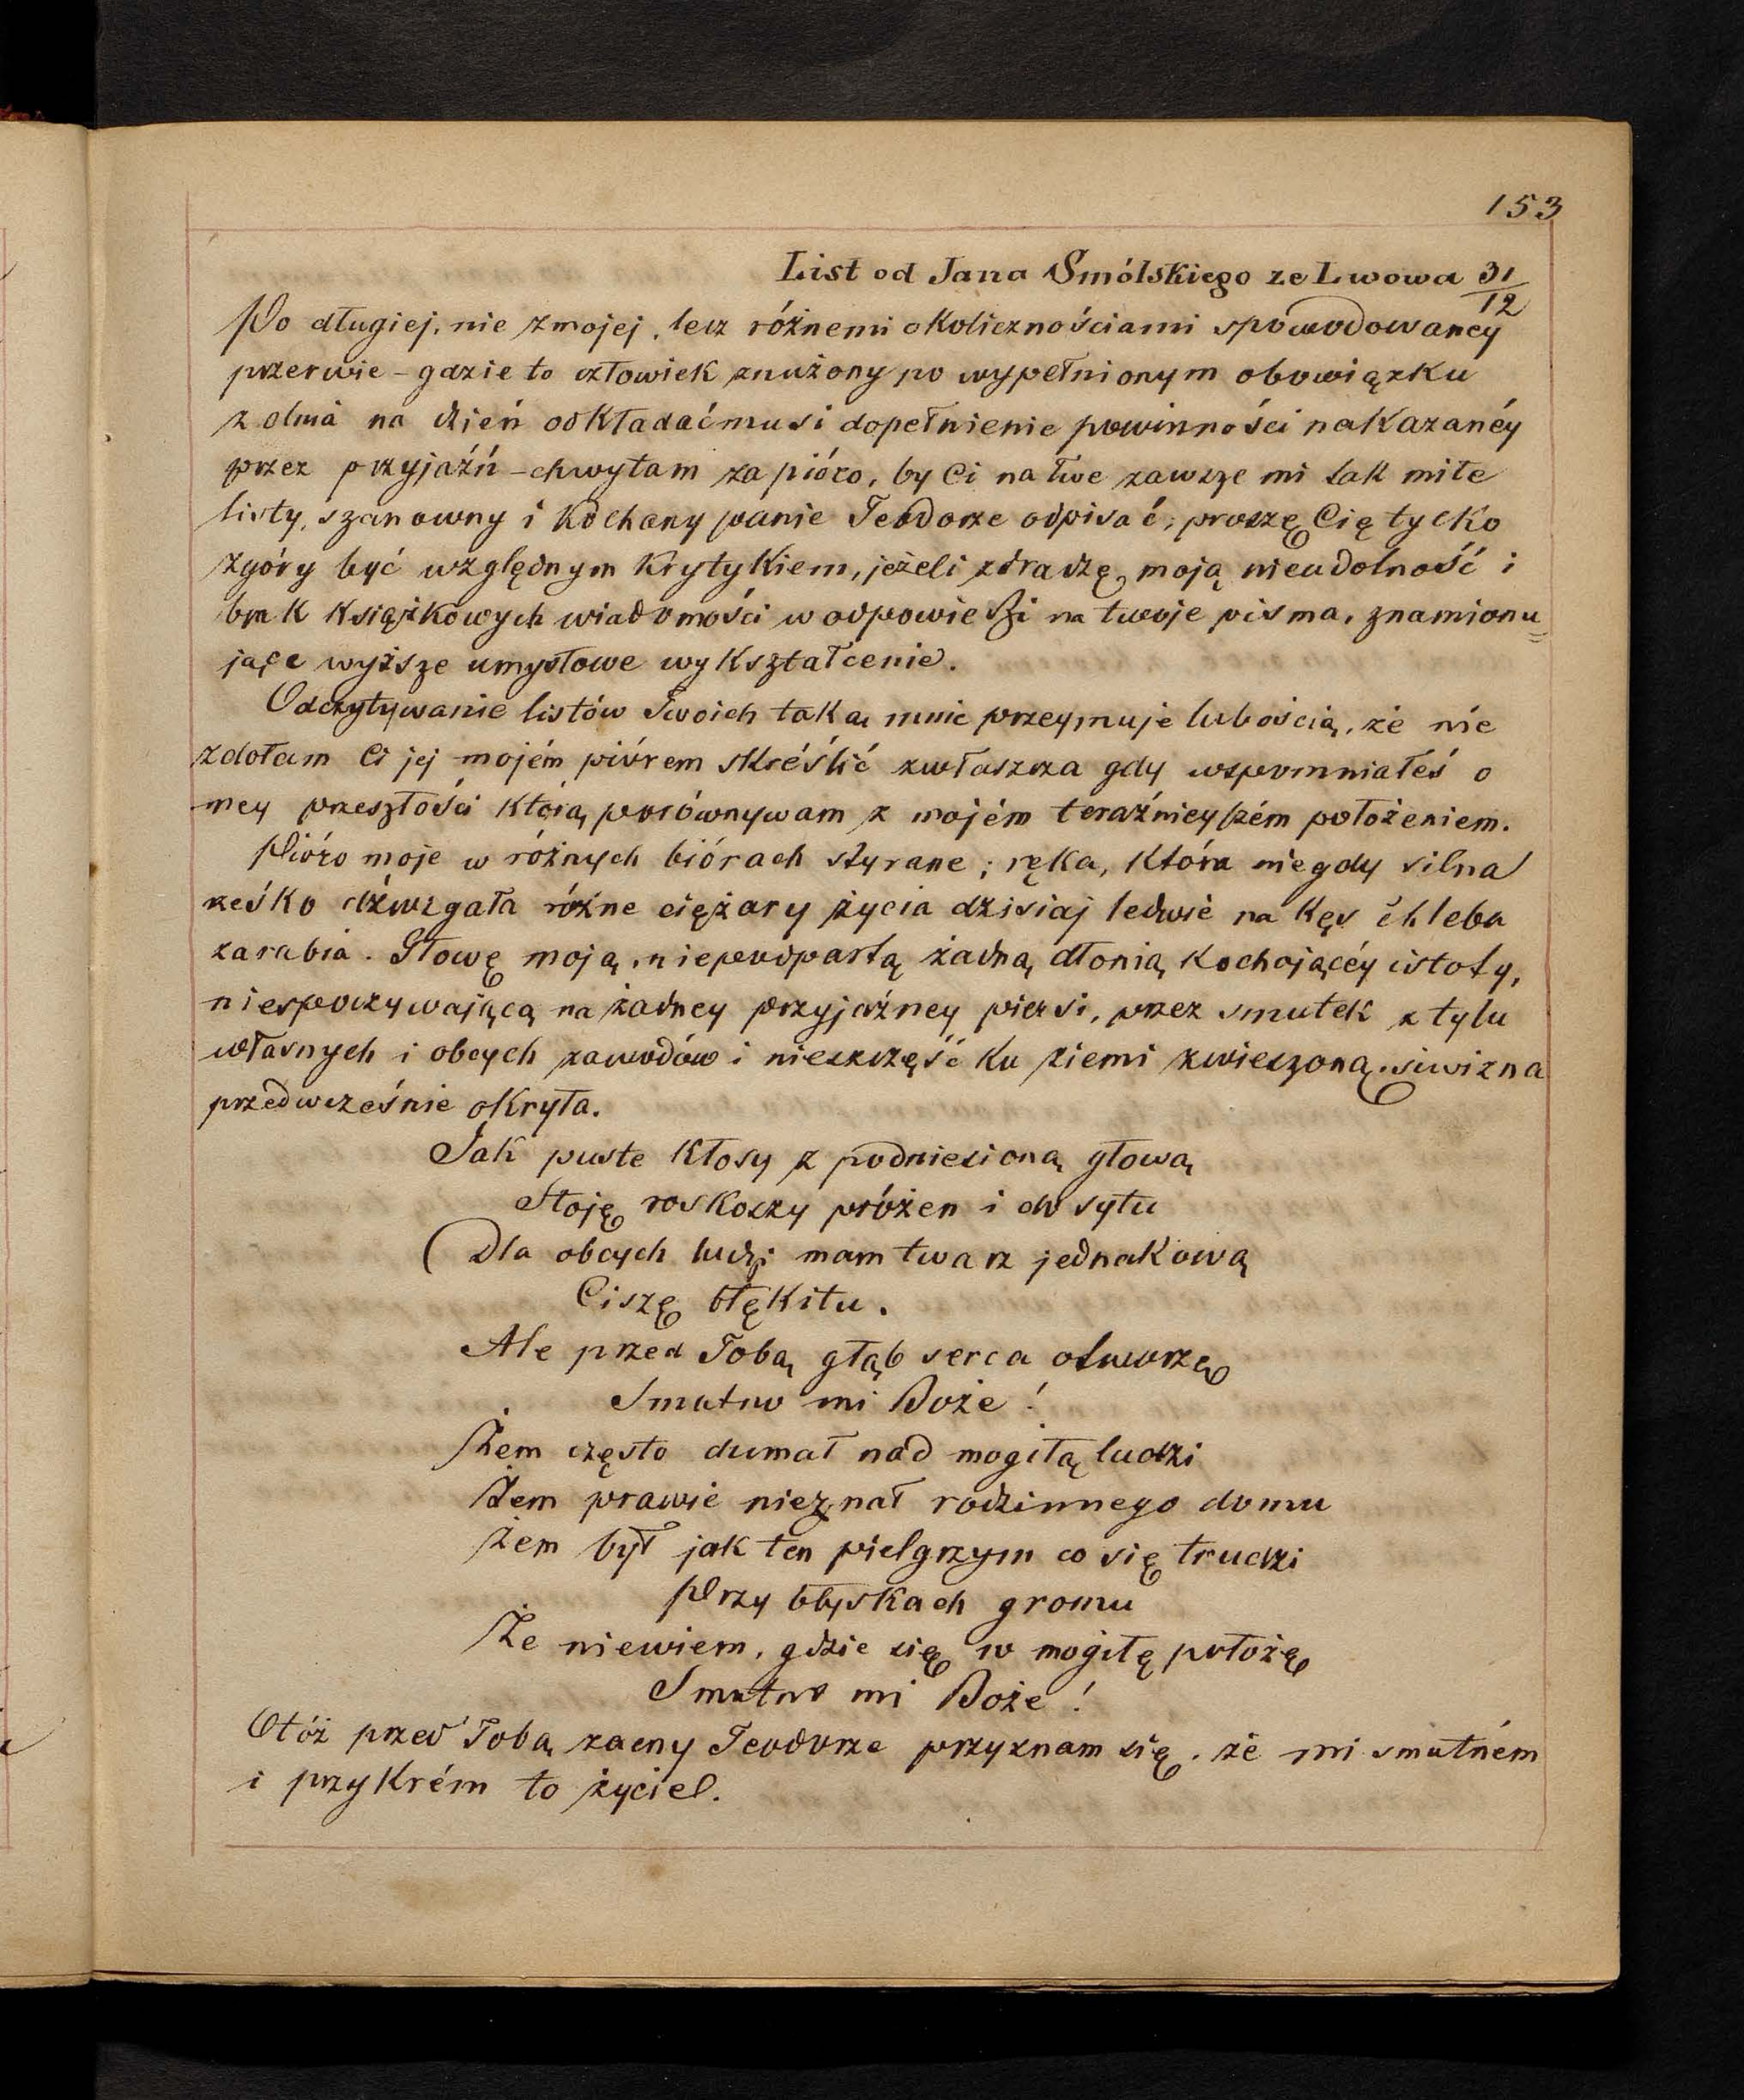 153
List od Jana Smólskiego ze Lwowa 31/12
Po długiej, nie z mojej, lecz różnemi okolicznościami spowodowaney
przerwie - gdzie to człowiek znużony po wypełnionym obowiązku
z dnia na dzień odkładać musi dopełnienie powinności nakazanéy
przez przyjaźń - chwytam za pióro, by Ci na Twe zawsze mi tak miłe
listy, szanowny i kochany panie Teodorze odpisać, proszę Cię tycko
zgóry być względnym krytykiem, jeżeli zdradzę moją nieudolność i
brak książkowych wiadomości w odpowiedzi na twoje pisma, znamionu=
jące wyższe umysłowe wykształcenie.
Odczytywanie listów Twoich taką mnie przeymuje lubością, że nie
zdołam Ci jej mojém piórem skréślić zwłaszcza gdy wspomniałeś o
mey przeszłości którą porównywam z mojém teraźnieyszém położeniem.
Pióro moje w różnych biórach styrane; ręka, która niegdy silna
rześko dźwigała różne ciężary życia dzisiaj ledwie na kęs chleba
zarabia. Głowę moją, niepodpartą żadną dłonią kochającéy istoty,
niespoczywającą na żadney przyjaźney piersi, przez smutek z tylu
własnych i obcych zawodów i nieszczęść ku ziemi zwieszoną, siwizna
przedwcześnie okryła.
Jak puste kłosy z podniesioną głową
Stoję roskoszy próżen i dosytu
Dla obcych ludzi mam twarz jednakową
Ciszę błękitu.
Ale przed Tobą głąb serca otworzę
Smutno mi Boże!
Żem często dumał nad mogiłą ludzi
Żem prawie nieznał rodzinnego domu
Żem był jak ten pielgrzym co się trudzi
Przy błyskach gromu
Że niewiem, gdzie się w mogiłę położę
Smutno mi Boże!
Otóż przed Tobą zacny Teodorze przyznam się, że mi smutném
i przykrém to życie!.